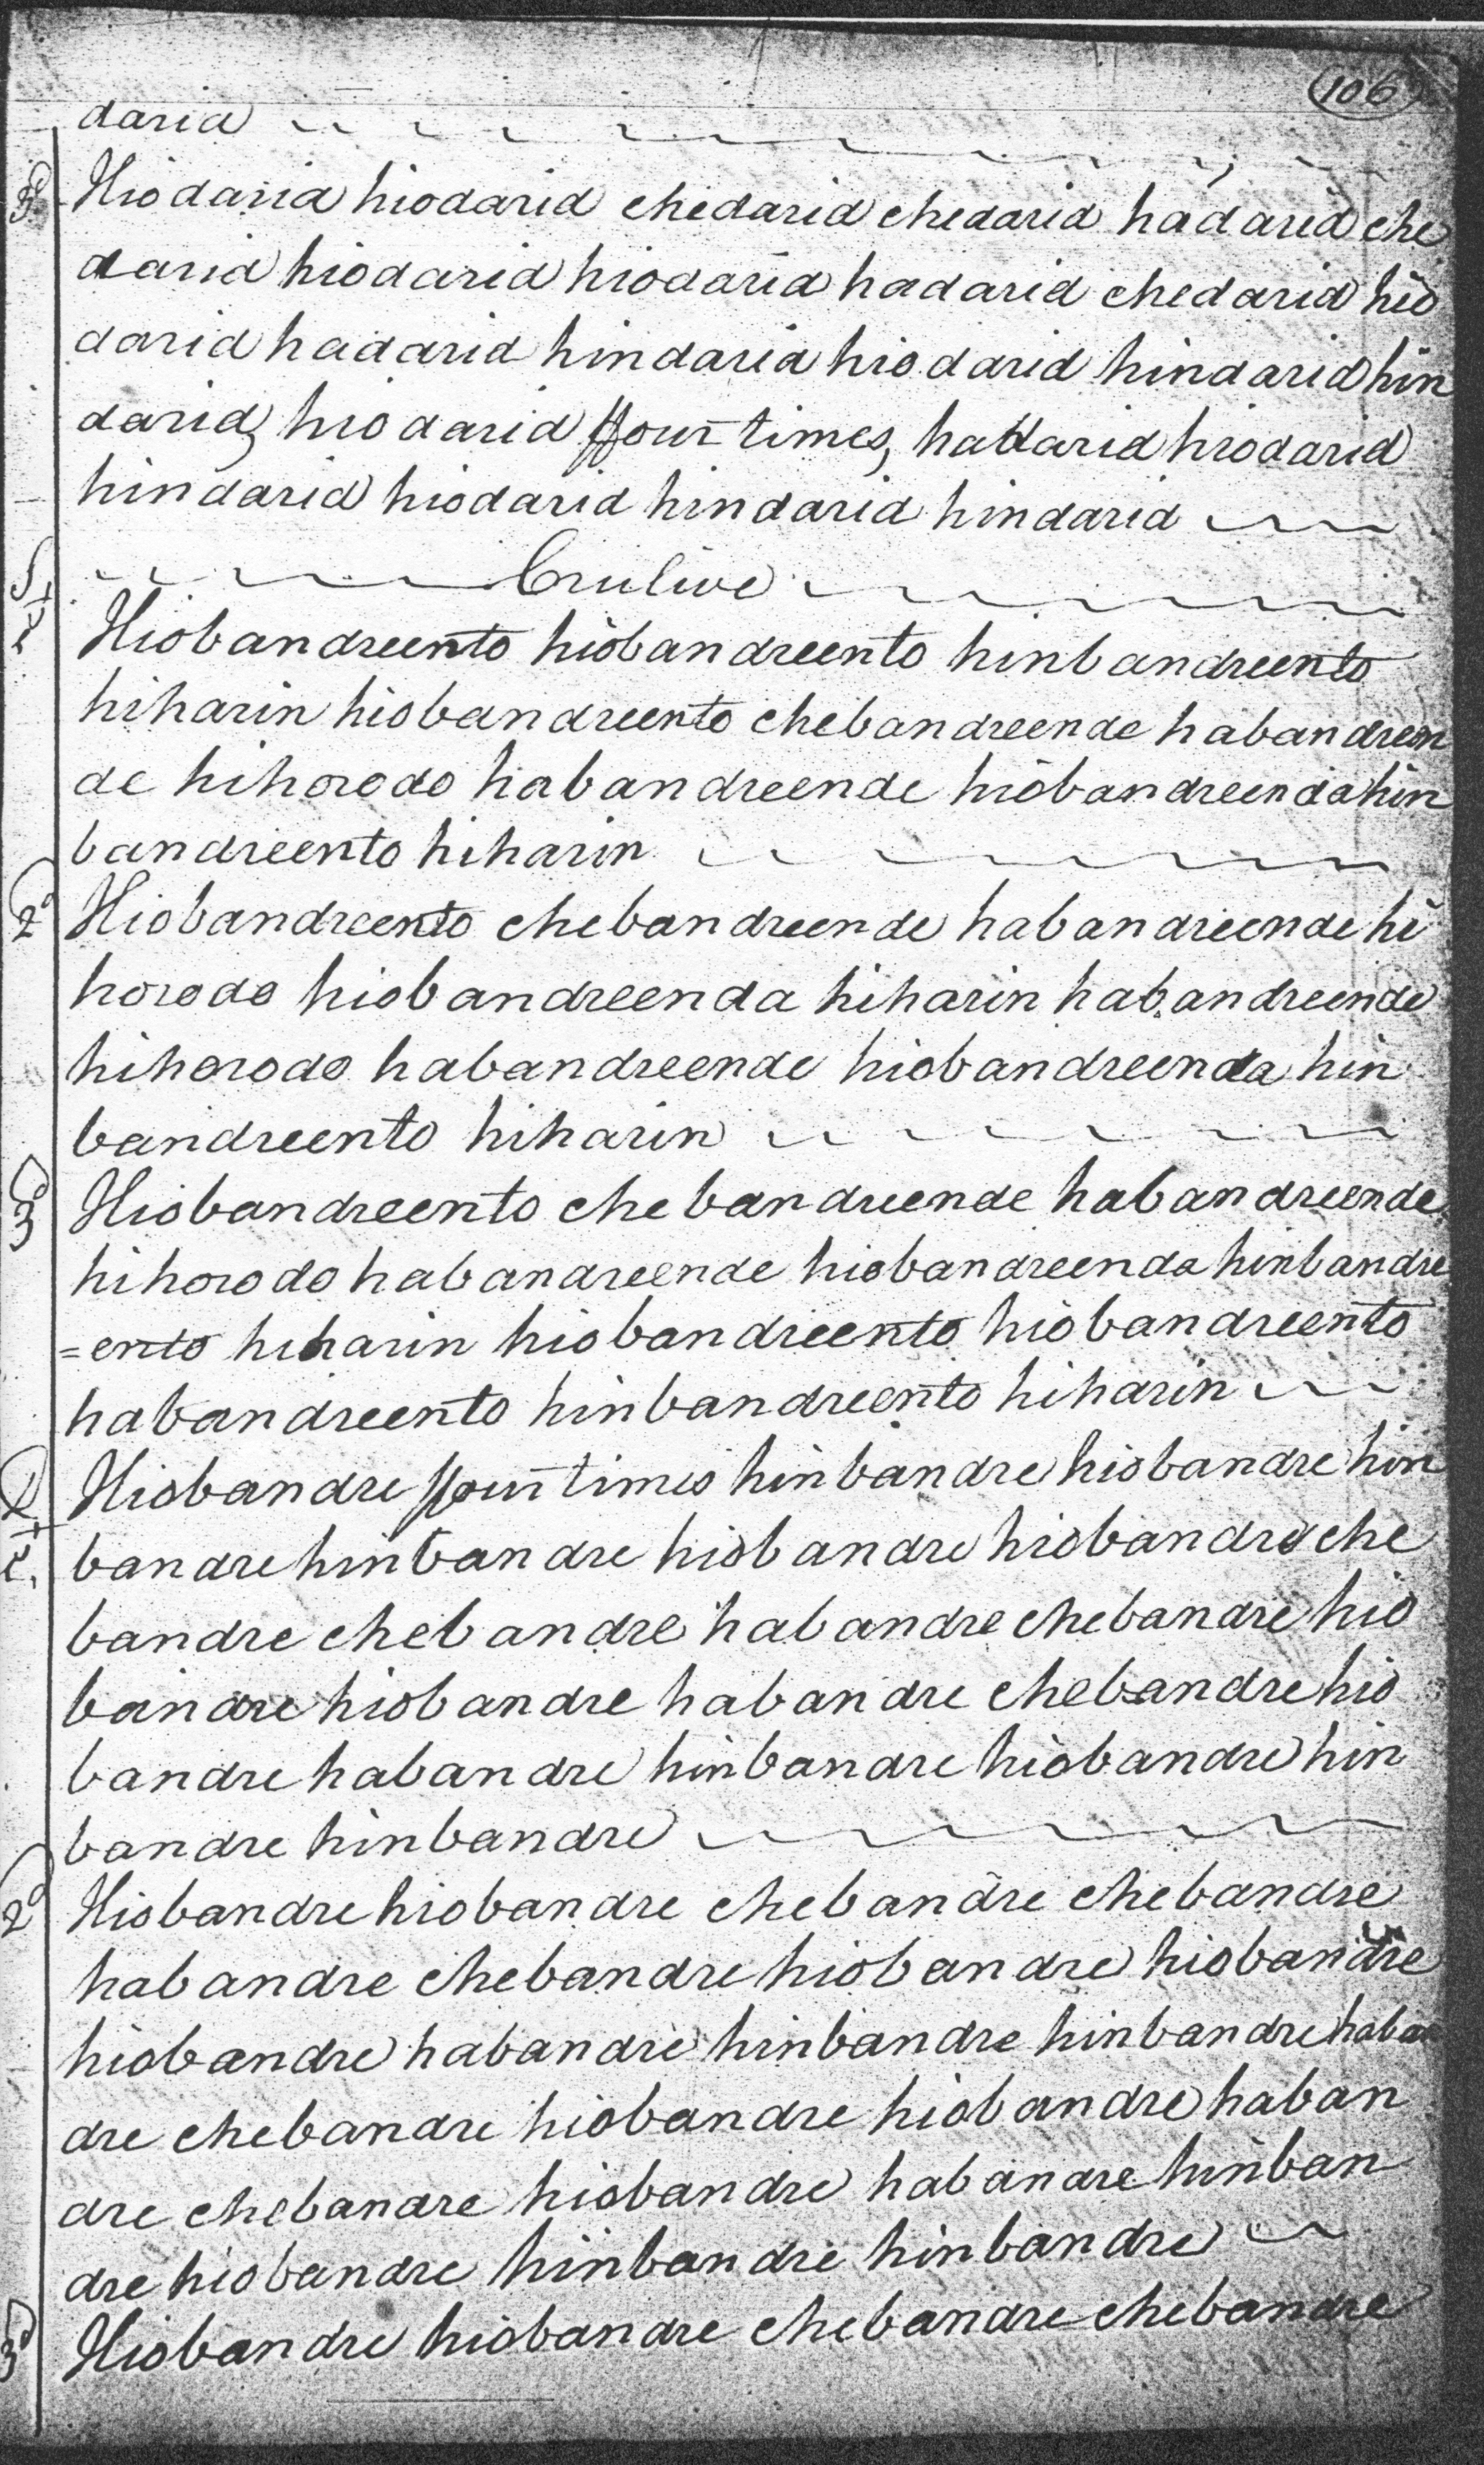 106
darid
3d Hiodarid hiodarid chedarid chedarid hadarid che
darid hiodarid hiodarid hadarid chedarid hio
darid hadarid hindarid hiodarid hindarid hin
darid, hiodarid ffour times, hadarid hiodarid
hindarid hiodarid hindarid hindarid
Crulive
Hiobandreento hiobandreento hinbandreento
hiharin hiobandreento chebandreende habandreen
de hihorodo habandreende hiobandreenda hin
bandreento hiharin
2d Hiobandreento chebandreende habandreende hi
horodo hiobandreenda hiharin habandreende
hihorodo habandreende hiobandreenda hin
bandreento hiharin
3d Hiobandreento chebandreende habandreende
hihorodo habandreende hiobandreenda hinbandre
=ento hiharin hiobandreento hiobandreento
habandreento hinbandreento hiharin
Hiobandre ffour times hinbandre hiobandre hin
bandre hinbandre hiobandre hiobandre che
bandre chebandre habandre chebandre hio
bandre hiobandre habandre chebandre hio
bandre habandre hinbandre hiobandre hin
bandre hinbandre
2d Hiobandre hiobandre chebandre chebandre
habandre chebandre hiobandre hiobandre
hiobandre habandre hinbandre hinbandre haban
dre chebandre hiobandre hiobandre haban
dre chebandre hiobandre habandre hinban
dre hiobandre hinbandre hinbandre
3d Hiobandre hiobandre chebandre chebandre